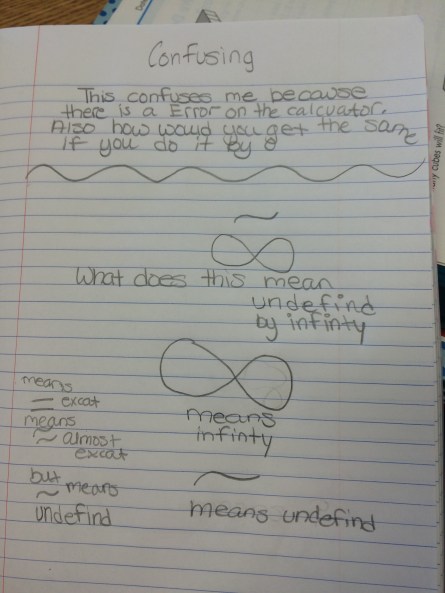 Confusing
This confuses me because
there is a Error on the calcuator.
Also how would you get the same
if you do it by 0
~
∞
What does this mean
undefind
by infinty
∞
means
infinty
~
means undefind
means
= excat
means
~ almost
excat
but
~ means
undefind
any cubes will fit